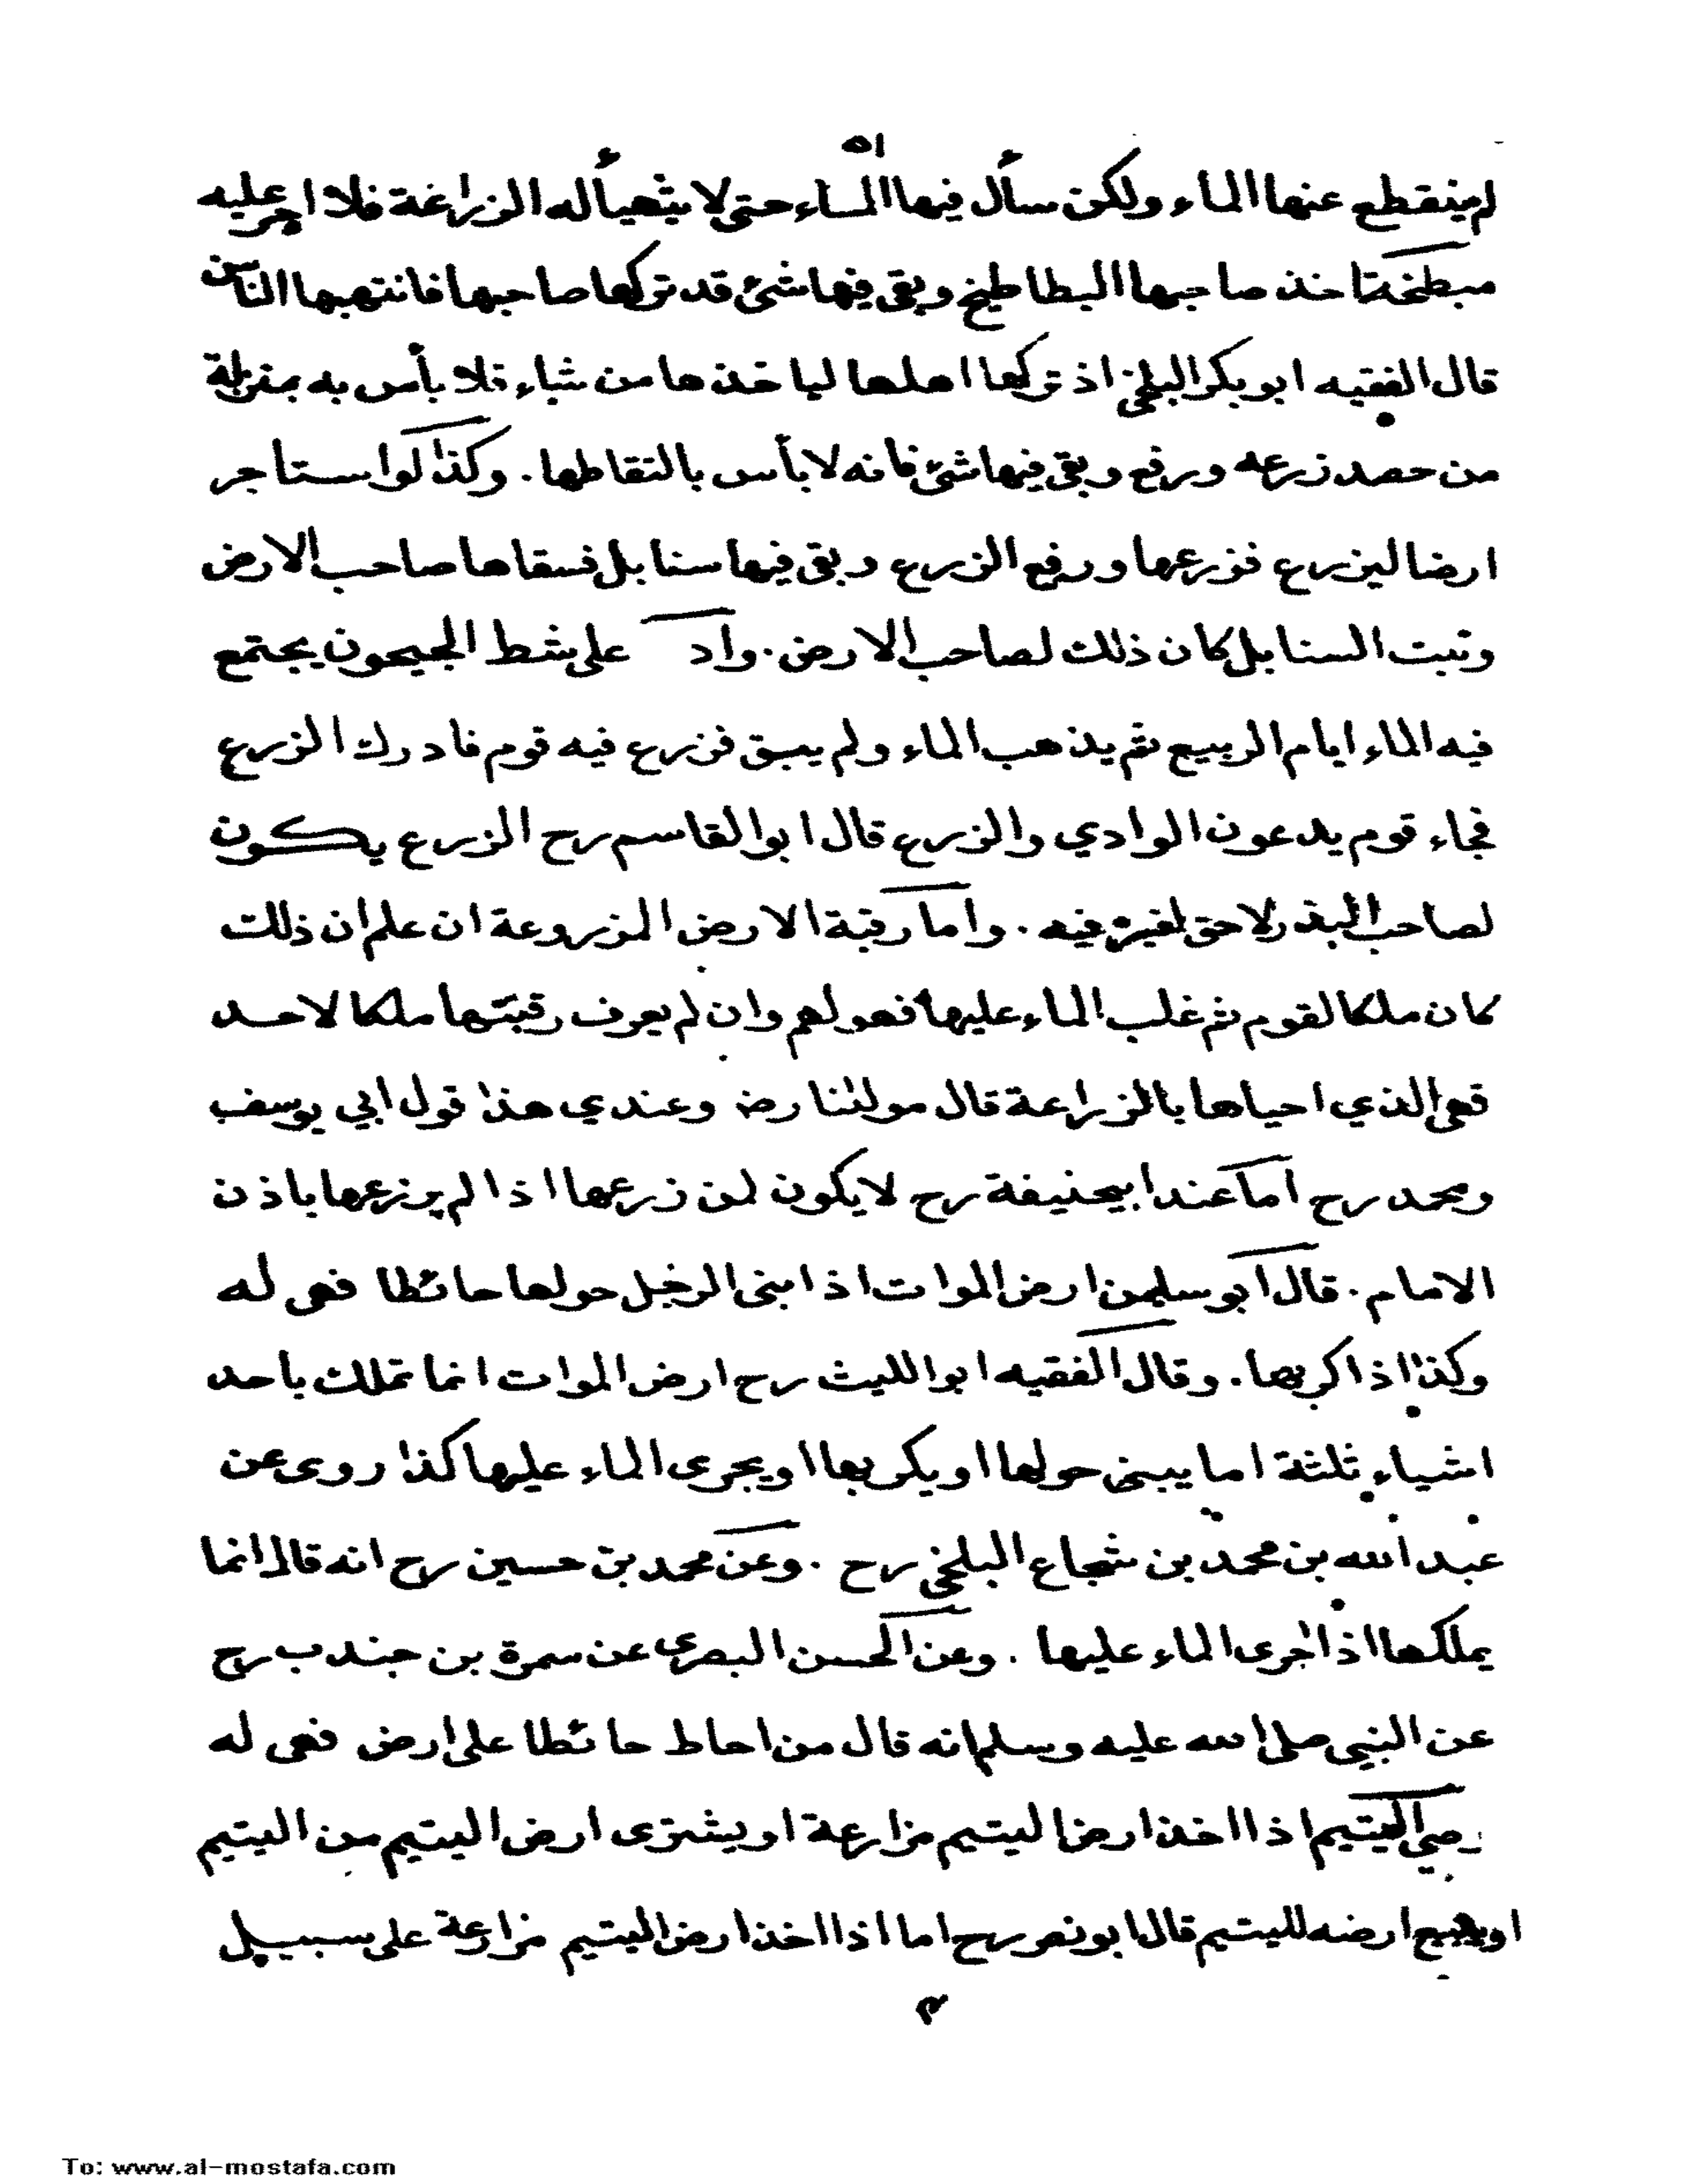 ٥١
لم ينقطع عنها الماء ولكن سأل فيها الماء حتى لا يتهيأ له الزراعة فلا اجر عليه
مبطخة اخذ صاحبها البطاطيخ وبقى فيها شئ قد تركها صاحبها فانتهبها الناس
قال الفقيه ابو بكر البلخى اذ تركها اهلها لياخذها من شاء فلا بأس به بمنزلة
من حصد زرعه ورفع وبقى فيها شئ فانه لا بأس بالتقاطها. وكذا لو استاجر
ارضا ليزرع فزرعها ورفع الزرع وبقى فيها سنابل فسقاها صاحب الارض
ونبت السنابل كان ذلك لصاحب الارض. واد على شط الجيحون يجتمع
فيه الماء ايام الربيع ثم يذهب الماء ولم يبق فزرع فيه قوم فادرك الزرع
فجاء قوم يدعون الوادي والزرع قال ابو القاسم رح الزرع يكون
لصاحب البذر لا حق لغيره فيه. واما رقبة الارض المزروعة ان علم ان ذلك
كان ملكا لقوم ثم غلب الماء عليها فهو لهم وان لم يعرف رقبتها ملكا لاحد
فهى الذي احياها بالزراعة قال مولنا رضـ وعندي هذا قول ابي يوسف
ومحمد رح اما عند ابيحنيفة رح لا يكون لمن زرعها اذا لم يزرعها باذن
الامام. قال ابو سليمن ارض الموات اذا بنى الرجل حولها حائطا فهى له
وكذا اذا كربها. وقال الفقيه ابو الليث رح ارض الموات انما تملك باحد
اشياء ثلثة اما يبنى حولها او يكربها او يجرى الماء عليها كذا روى عن
عبد الله بن محمد بن شجاع البلخى رح . وعن محمد بن حسين رح انه قال انما
يملكها اذا اجرى الماء عليها . وعن الحسن البصرى عن سمرة بن جندب رح
عن النبى صلى الله عليه وسلم انه قال من احاط حائطا على ارض فهى له
وصي اليتيم اذا اخذ ارضا ليتيم مزارعة او يشترى ارض اليتيم من اليتيم
او يبيع ارضه لليتيم قال ابو نصر رح اما اذا اخذ ارض اليتيم مزارعة على سبيل
To: www.al-mostafa.com